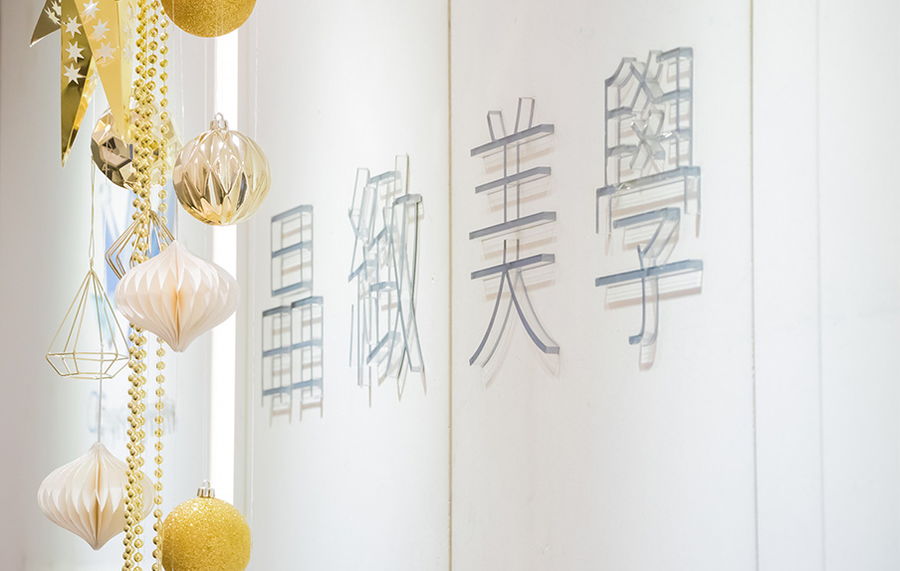 晶緻美學